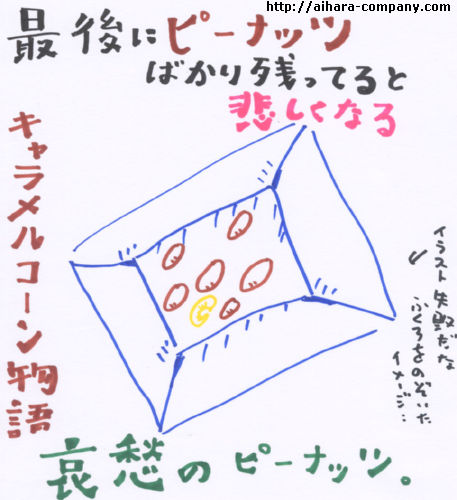 http://aihara-company.com/
最後にピーナッツ
ばかり残ってると
悲しくなる
キャラメルコーン物語
イラスト失敗だな
ふくろをのぞいた
イメージ…
哀愁のピーナッツ。